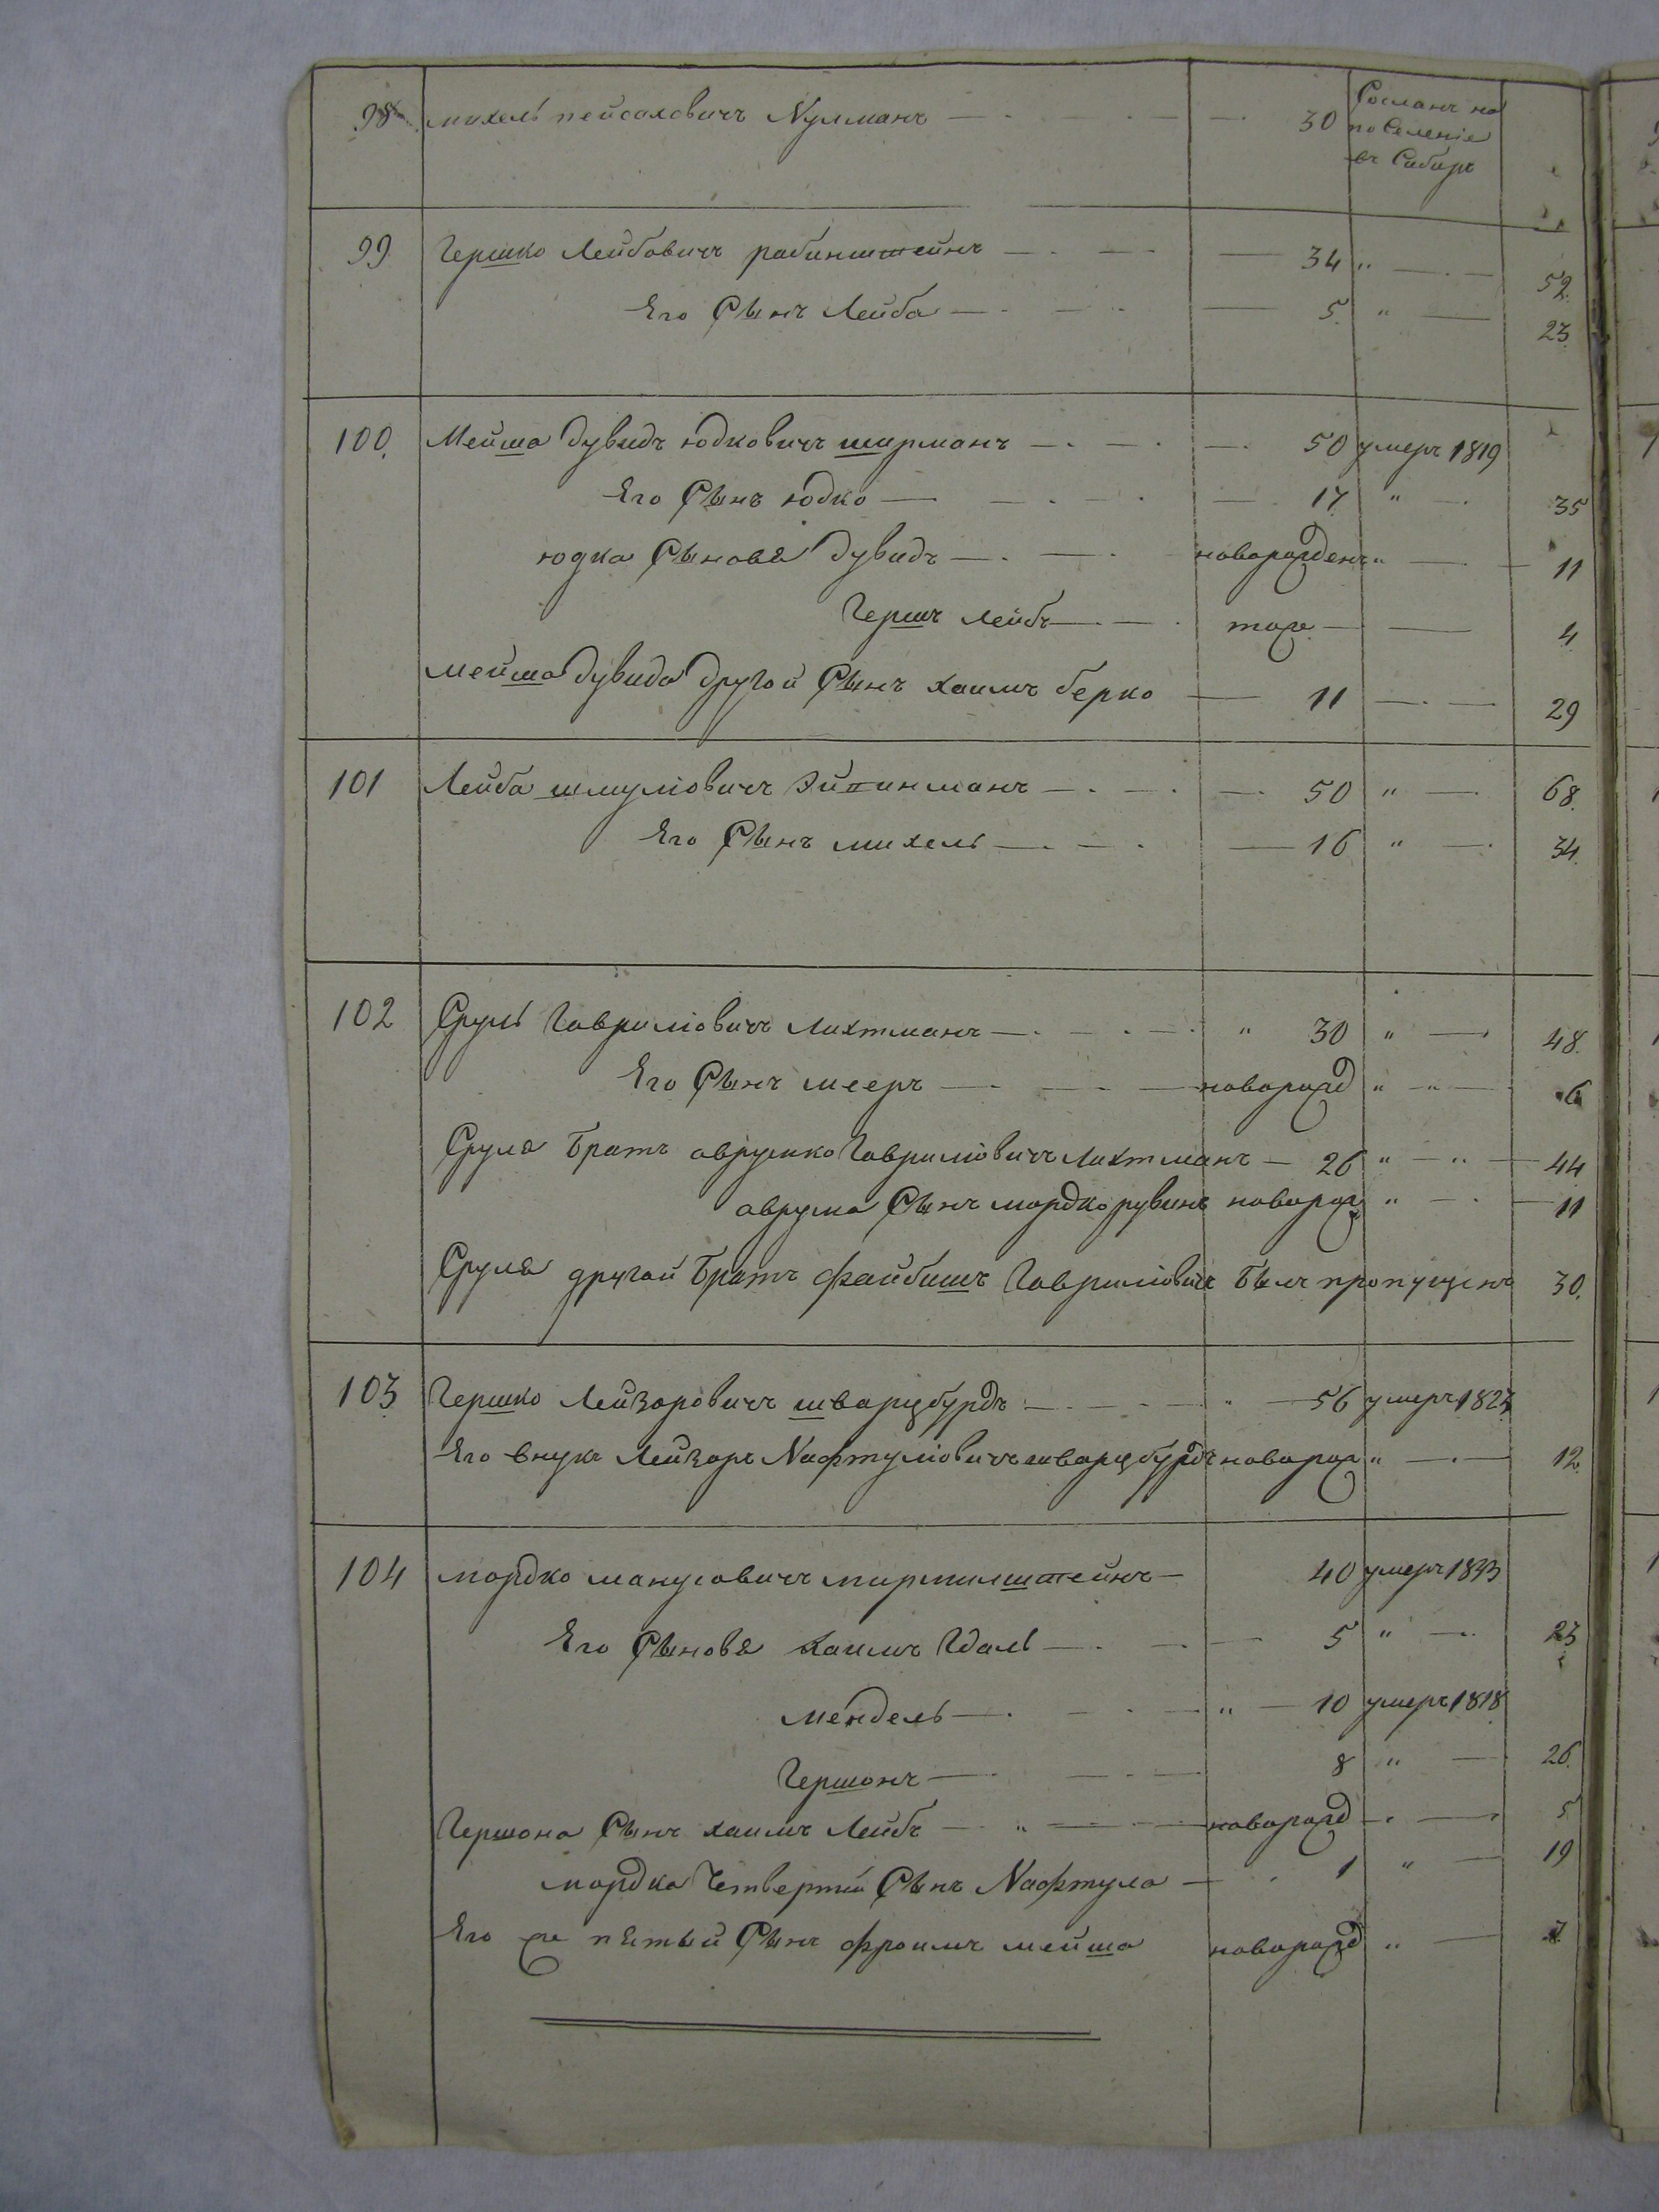 98. михель пейсаховичъ Нулманъ — 30 Сосланъ на
поселеніе
въ Сибирь
99 Гершко Лейбовичъ рабинштейнъ — 34 " — 52.
Его Сынъ Лейба — 5. " — 23.
100. Мейша дувидъ юдковичъ ширманъ — 50 умеръ 1819
Его Сынъ юдко — 17 " — 35
юдка Сыновя дувидъ — новорожденъ " — 11
Гершъ лейбъ — тож — 4
мейша дувида другой Сынъ хаимъ берко — 11 — 29
101 Лейба шмуліовичъ Эйпинманъ — 50 " — 68.
Его Сынъ михель — 16 " — 34.
102 Сруль Гавриліовичъ Лихтманъ — " 30 " — 48.
Его Сынъ мееръ — новорожд " " — 6
Сруля братъ аврумко Гавриліовичъ Лихтманъ — 26 " — " — 44
аврума Сынъ мордко рувинъ новорож " — 11
Сруля другой братъ файбишъ Гавриліовичъ былъ пропущенъ 30.
103 Гершко Лейзоровичъ шварцбурдъ — 56 умеръ 1823
Его внукъ Лейзоръ Нафтуліовичъ шварцбурдъ новорож " — 12.
104 мордко манусовичъ мирмилштейнъ — 40 умеръ 1833
Его Сыновя Хаимъ Гдаль — 5 " — 23
мендель — " — 10 умеръ 1818
Гершонъ — 8 " — 26
Гершона Сынъ хаимъ Лейбъ — " — новорожд — 5
мордка Четвертій Сынъ Нафтула — 1 " — 19
Его же пятый Сынъ фроимъ мейша новорожд " — 7